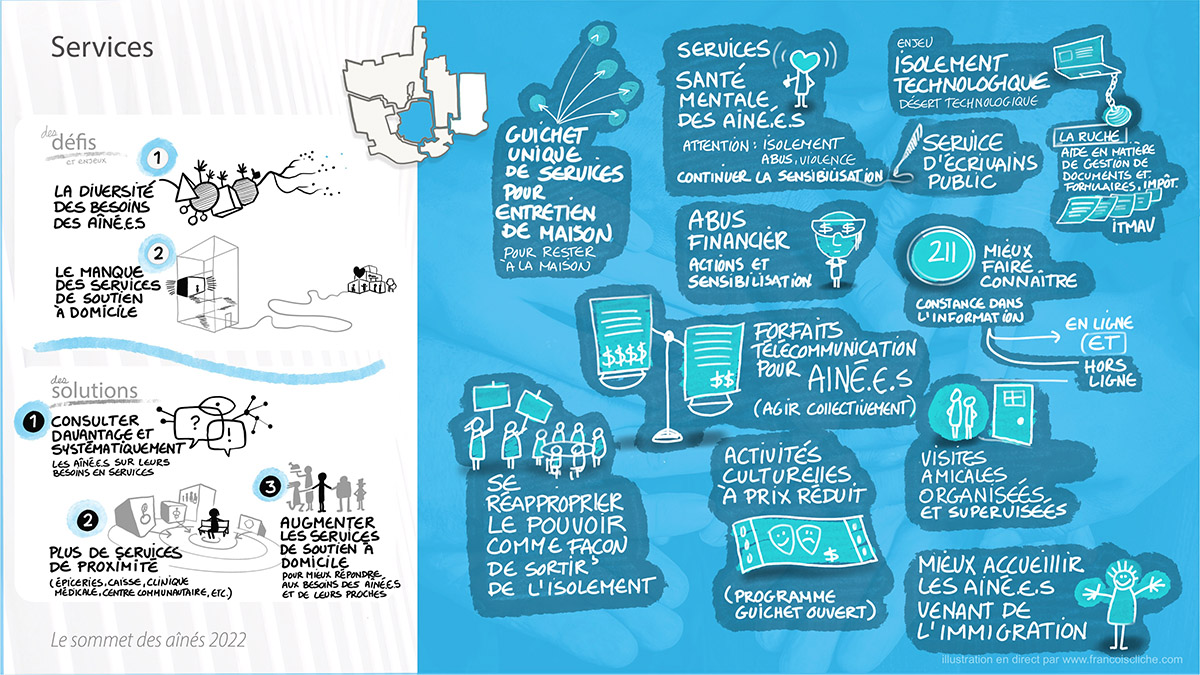 Services
des
défis
et enjeux
1
LA DIVERSITÉ
DES BESOINS
DES AÎNÉ.E.S
2
LE MANQUE
DES SERVICES
DE SOUTIEN
À DOMICILE
des
solutions
1
CONSULTER
DAVANTAGE ET
SYSTÉMATIQUEMENT
LES AÎNÉ.E.S SUR LEURS
BESOINS EN SERVICES
?
!
2
PLUS DE SERVICES
DE PROXIMITÉ
(ÉPICERIES, CAISSE, CLINIQUE
MÉDICALE, CENTRE COMMUNAUTAIRE, ETC.)
3
AUGMENTER
LES SERVICES
DE SOUTIEN À
DOMICILE
POUR MIEUX RÉPONDRE
AUX BESOINS DES AINÉ.E.S
ET DE LEURS PROCHES
Le sommet des aînés 2022
GUICHET
UNIQUE
DE SERVICES
POUR
ENTRETIEN
DE MAISON
POUR RESTER
À LA MAISON
SERVICES
SANTÉ
MENTALE
DES AINÉ.E.S
ATTENTION : ISOLEMENT
ABUS, VIOLENCE
CONTINUER LA SENSIBILISATION
ENJEU
ISOLEMENT
TECHNOLOGIQUE
DÉSERT TECHNOLOGIQUE
SERVICE
D'ÉCRIVAINS
PUBLIC
LA RUCHE
AIDE EN MATIÈRE
DE GESTION DE
DOCUMENTS ET
FORMULAIRES, IMPÔT.
ITMAV
ABUS
FINANCIER
ACTIONS ET
SENSIBILISATION
$ $
211
MIEUX
FAIRE
CONNAÎTRE
CONSTANCE DANS
L'INFORMATION
EN LIGNE
ET
HORS
LIGNE
$$$$
$$
FORFAITS
TÉLÉCOMMUNICATION
POUR AINÉ.E.S
(AGIR COLLECTIVEMENT)
SE
RÉAPPROPRIER
LE POUVOIR
COMME FAÇON
DE SORTIR
DE L'ISOLEMENT
ACTIVITÉS
CULTURELLES
À PRIX RÉDUIT
$
(PROGRAMME
GUICHET OUVERT)
VISITES
AMICALES
ORGANISÉES
ET SUPERVISÉES
MIEUX ACCUEILLIR
LES AINÉ.E.S
VENANT DE
L'IMMIGRATION
illustration en direct par www.francoiscliche.com